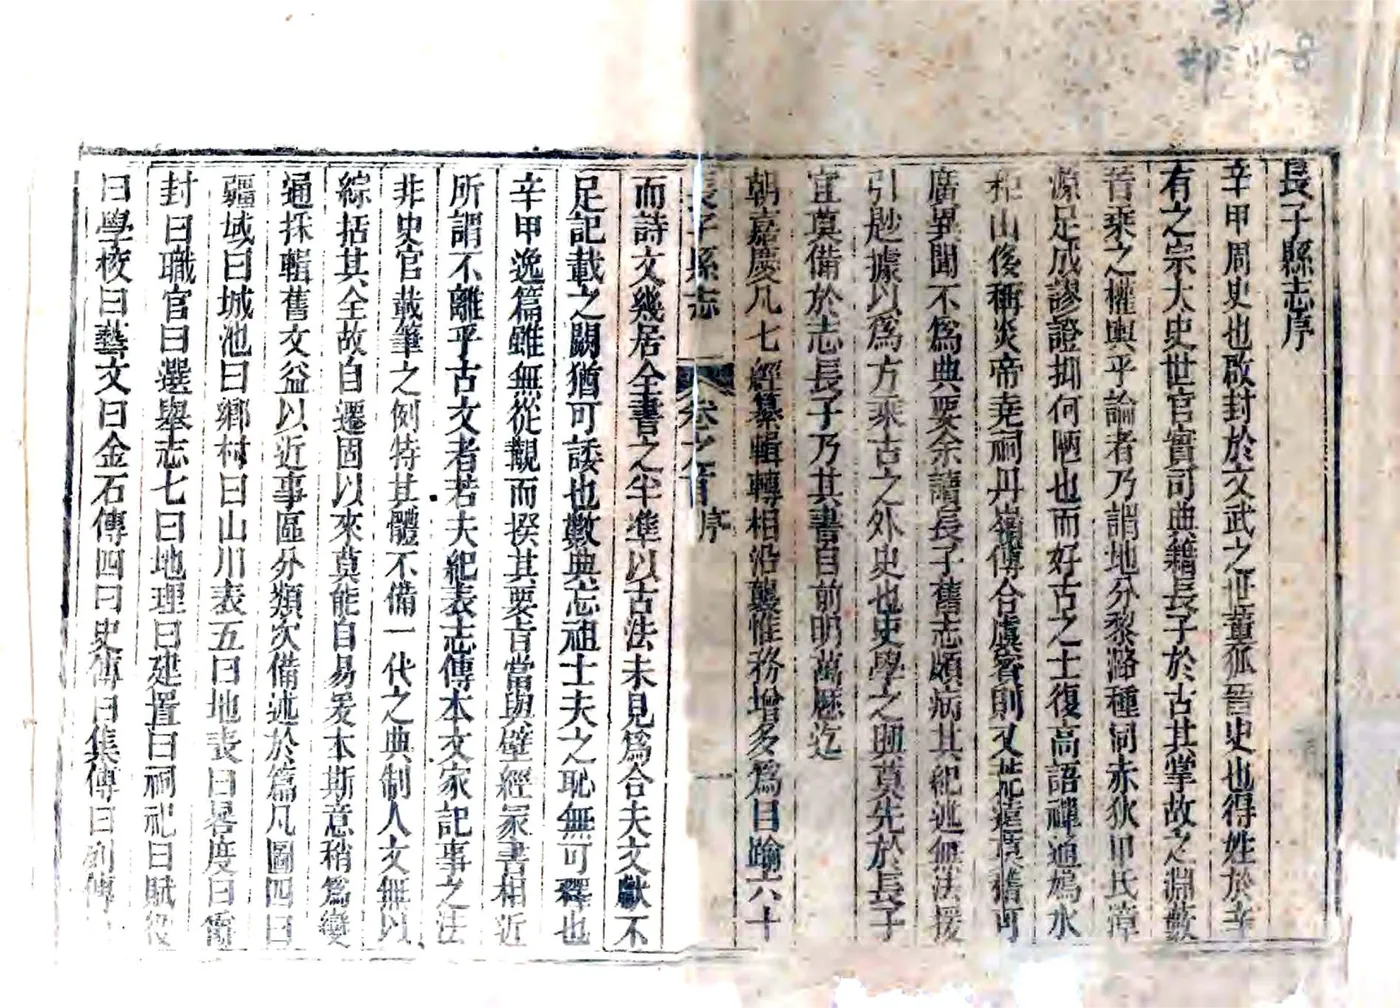 長子縣志序
辛甲周史也啟封於文武之世董狐晉史也得姓於辛
有之宗大史世官實司典籍長子於古其掌故之淵藪
晉乘之權輿乎論者乃謂地分黎潞種同赤狄甲氏漳
源足成謬證抑何陋也而好古之士復高語禪通鳩水
和山侈稱炎帝堯祠丹嶺傅合虞賓則又荒遠莫稽可
廣異聞不為典要余讀長子舊志頗病其紀述無法援
引尠據以為方乘古之外史也史學之興莫先於長子
宜莫備於志長子乃其書自前明萬歷迄
朝嘉慶凡七經纂輯轉相沿襲惟務增多為目踰六十
長子縣志 卷之首 序 一
而詩文幾居全書之半準以古法未見為合夫文獻不
足記載之闕猶可諉也數典忘祖士夫之恥無可釋也
辛甲逸篇雖無從覩而揆其要旨當與壁經冢書相近
所謂不離乎古文者若夫紀表志傳本文家記事之法
非史官載筆之例特其體不備一代之典制人文無以
綜括其全故自遷固以來莫能自易爰本斯意稍為變
通採輯舊文益以近事區分類次備述於篇凡圖四曰
疆域曰城池曰鄉村曰山川表五曰地表曰晷度曰
封曰職官曰選舉志七曰地理曰建置曰祠祀曰賦役
曰學校曰藝文曰金石傳四曰史傳曰集傳曰列傳